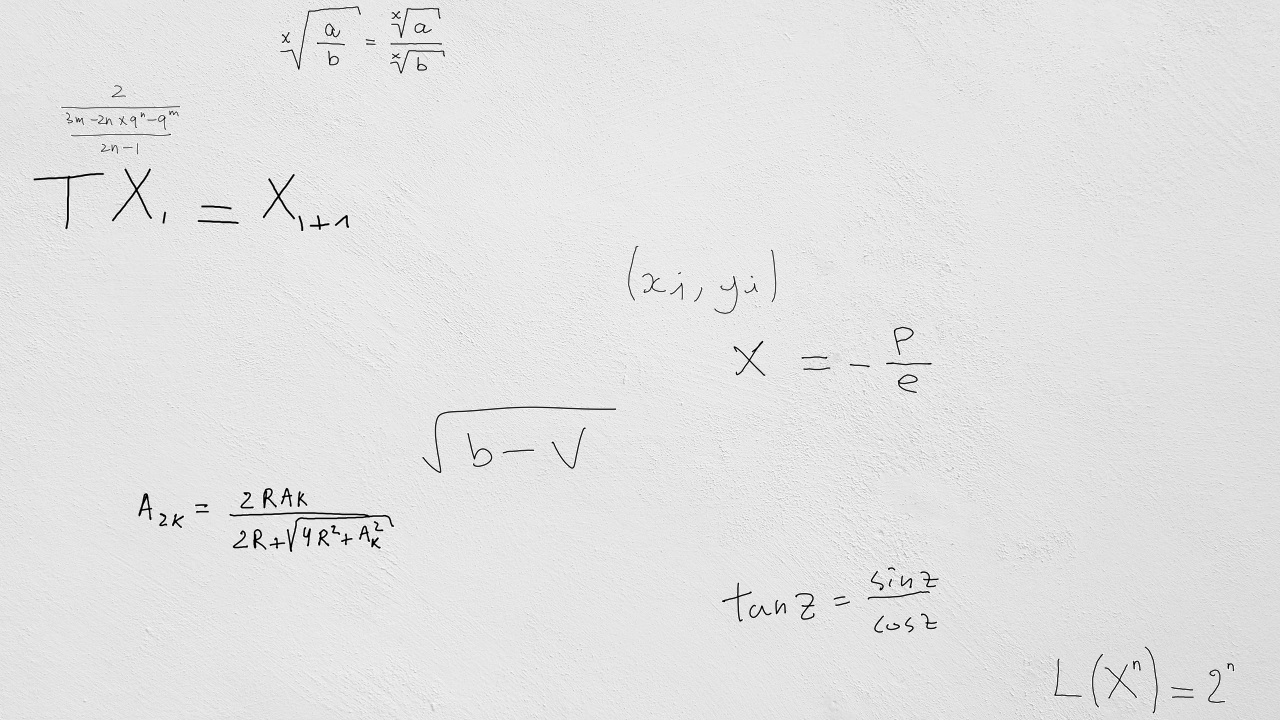 \sqrt[x]{\frac{a}{b}} = \frac{\sqrt[x]{a}}{\sqrt[x]{b}}
\frac{2}{\frac{3m-2n \times 9^n - 9^m}{2n-1}}
T X_i = X_{i+1}
(x_i, y_i)
X = -\frac{P}{e}
\sqrt{b-V}
A_{2K} = \frac{2RAK}{2R+\sqrt{4R^2+A_K^2}}
\tan z = \frac{\sin z}{\cos z}
L(X^n) = 2^n